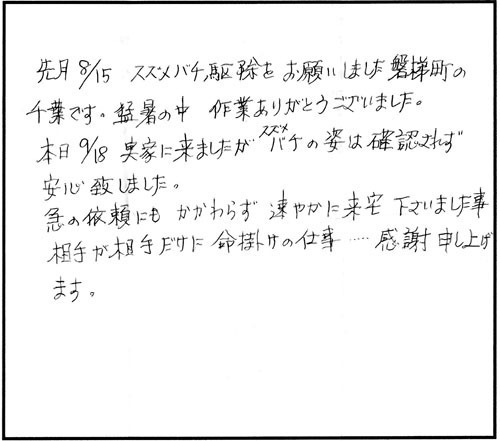 先月8/15 スズメバチ駆除をお願いしました磐梯町の
千葉です。猛暑の中 作業ありがとうございました。
本日9/18 実家に来ましたがスズメバチの姿は確認されず
安心致しました。
急の依頼にもかかわらず速やかに来宅下さいました事
相手が相手だけに命掛けの仕事……感謝申し上げ
ます。